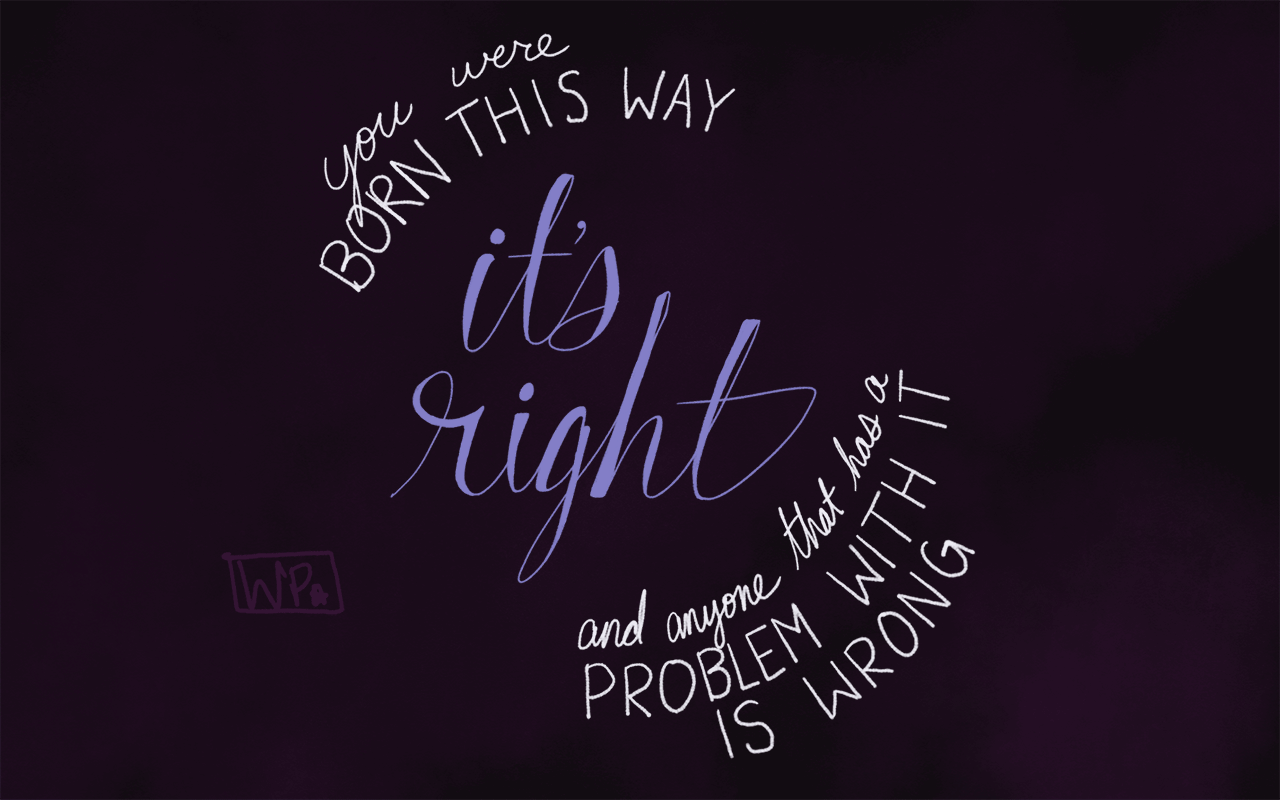 you were
BORN THIS WAY
it's
right
and anyone that has a
PROBLEM WITH IT
IS WRONG
WP